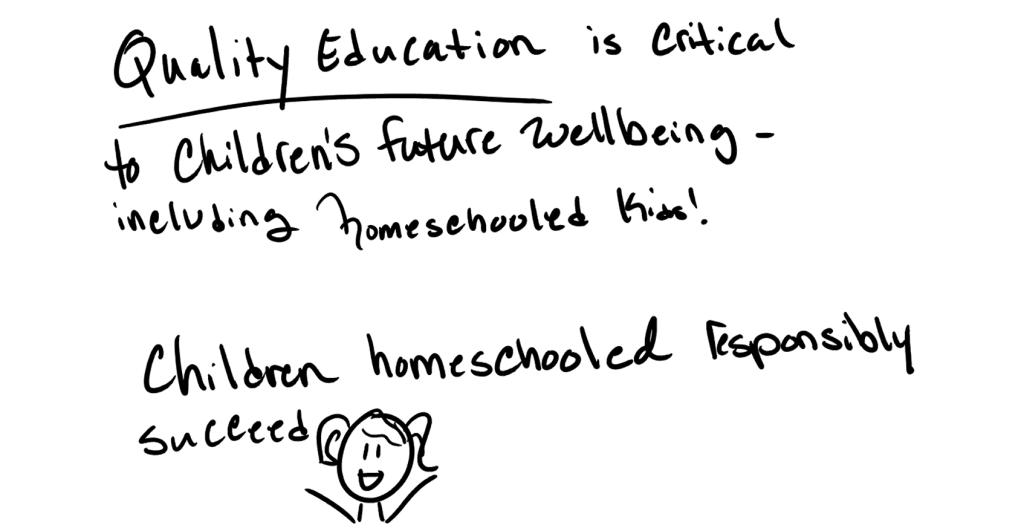 Quality Education is critical
to Children's future wellbeing -
including homeschooled kids!
Children homeschooled responsibly
succeed